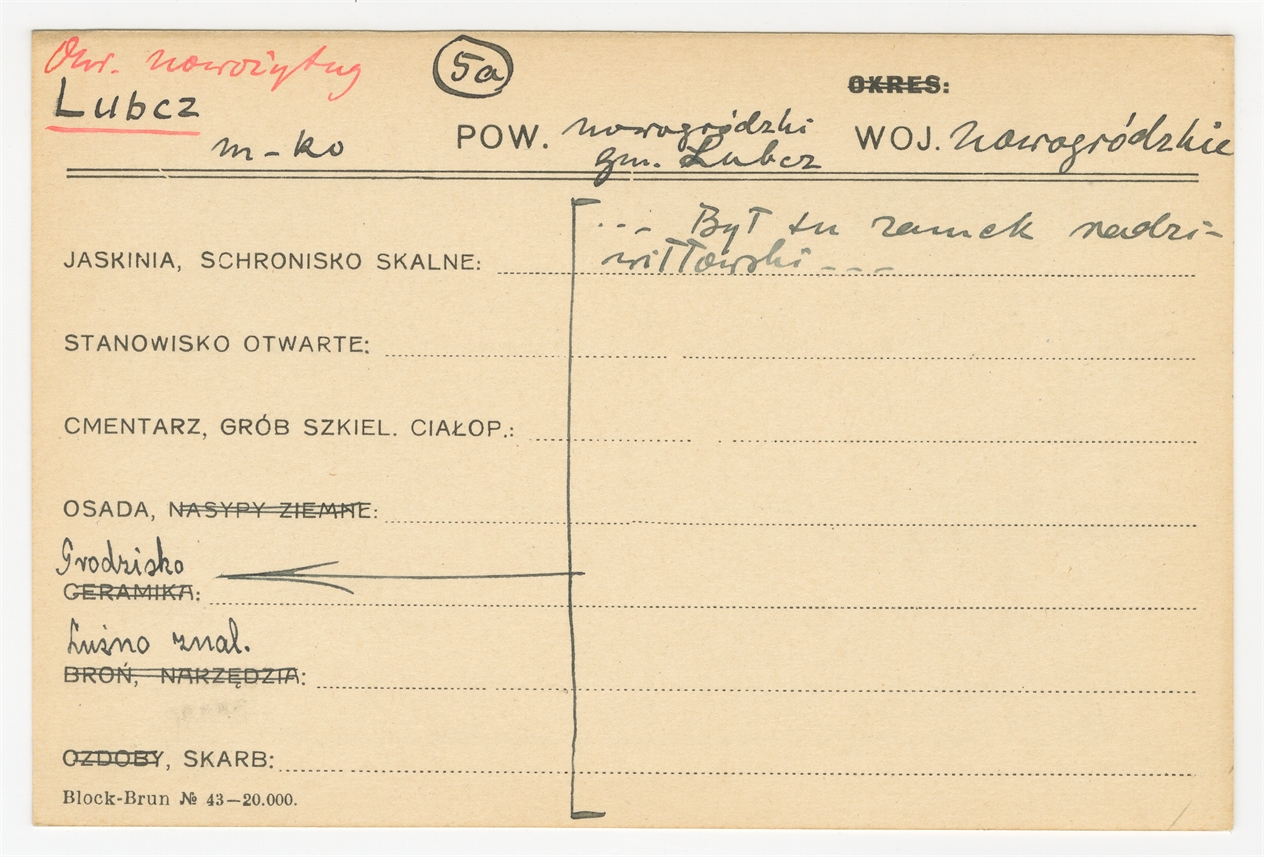 Okr. nowożytny
5a
OKRES:
Lubcz
m-ko
POW. nowogródzki
WOJ. Nowogródzkie
gm. Lubcz
... Był tu zamek radzi-
JASKINIA, SCHRONISKO SKALNE: wiłłowski ...
STANOWISKO OTWARTE:
CMENTARZ, GRÓB SZKIEL. CIAŁOP.:
OSADA, NASYPY ZIEMNE:
Grodzisko
CERAMIKA:
Luźno znal.
BROŃ, NARZĘDZIA:
OZDOBY, SKARB:
Block-Brun № 43—20.000.